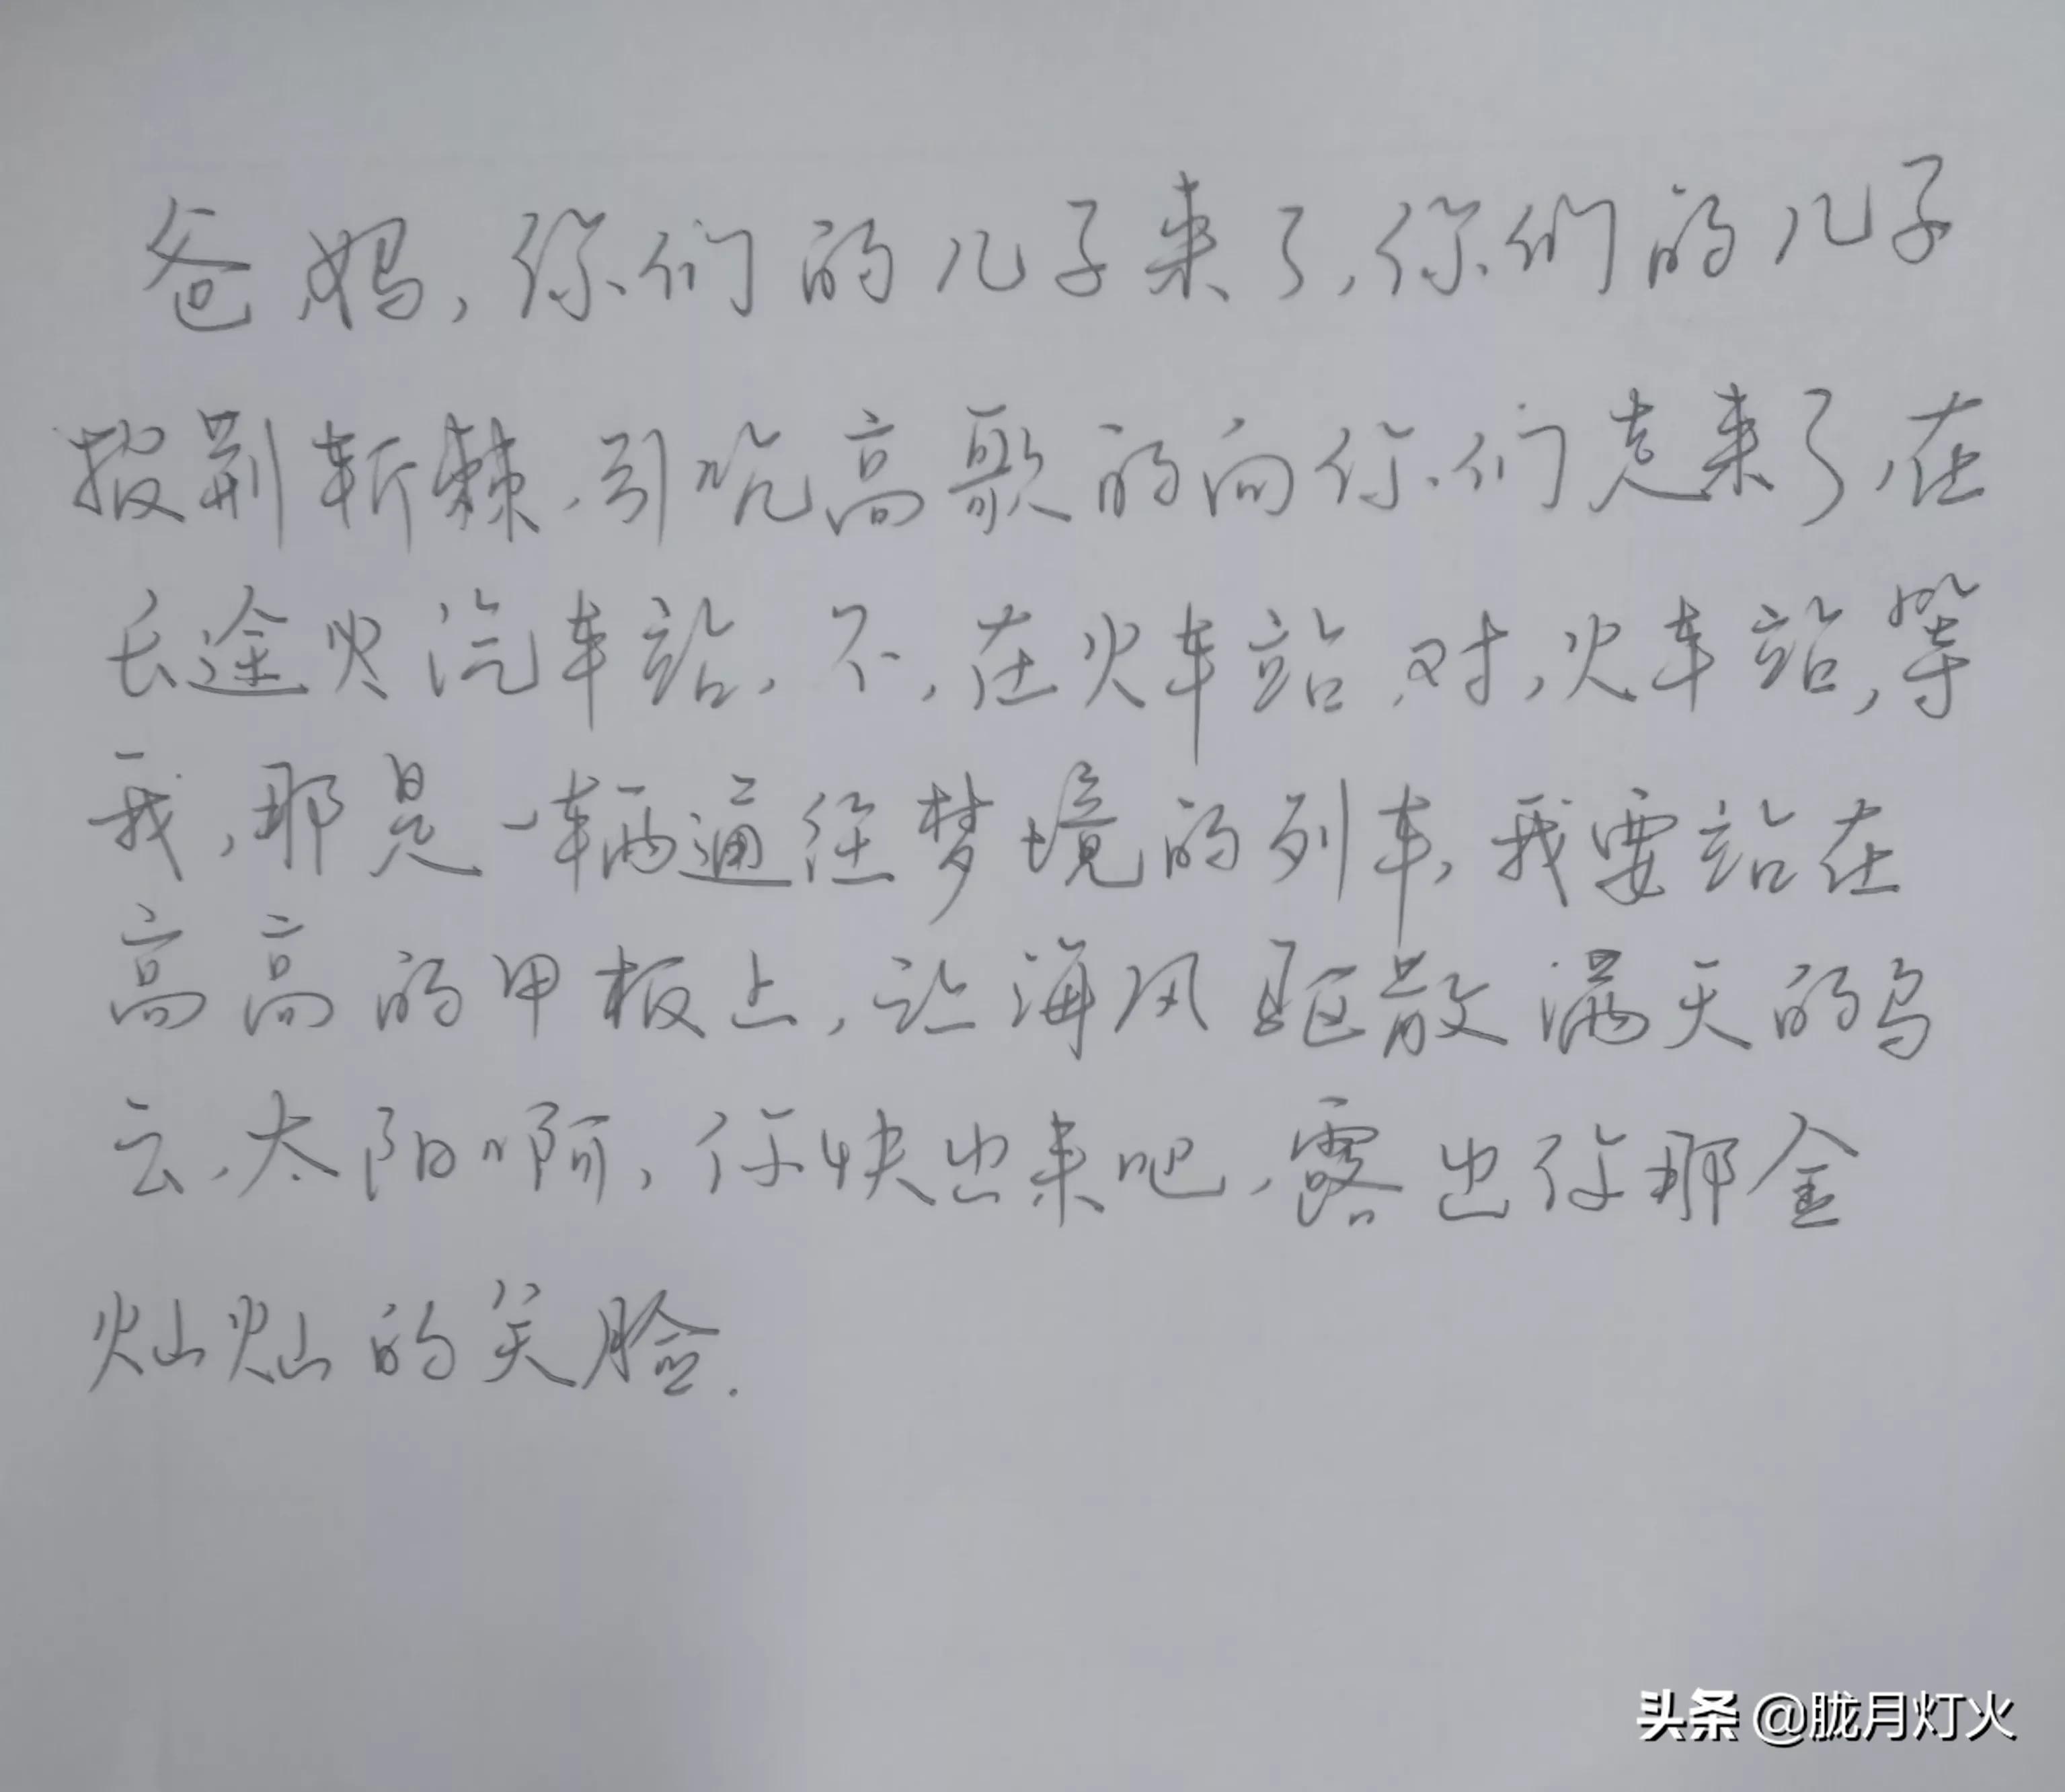 爸妈,你们的儿子来了,你们的儿子
披荆斩棘,引吭高歌的向你们走来了,在
长途火汽车站,不,在火车站,对,火车站,等
我,那是一辆通往梦境的列车,我要站在
高高的甲板上,让海风驱散满天的乌
云,太阳啊,你快出来吧,露出你那金
灿灿的笑脸.
头条 @胧月灯火